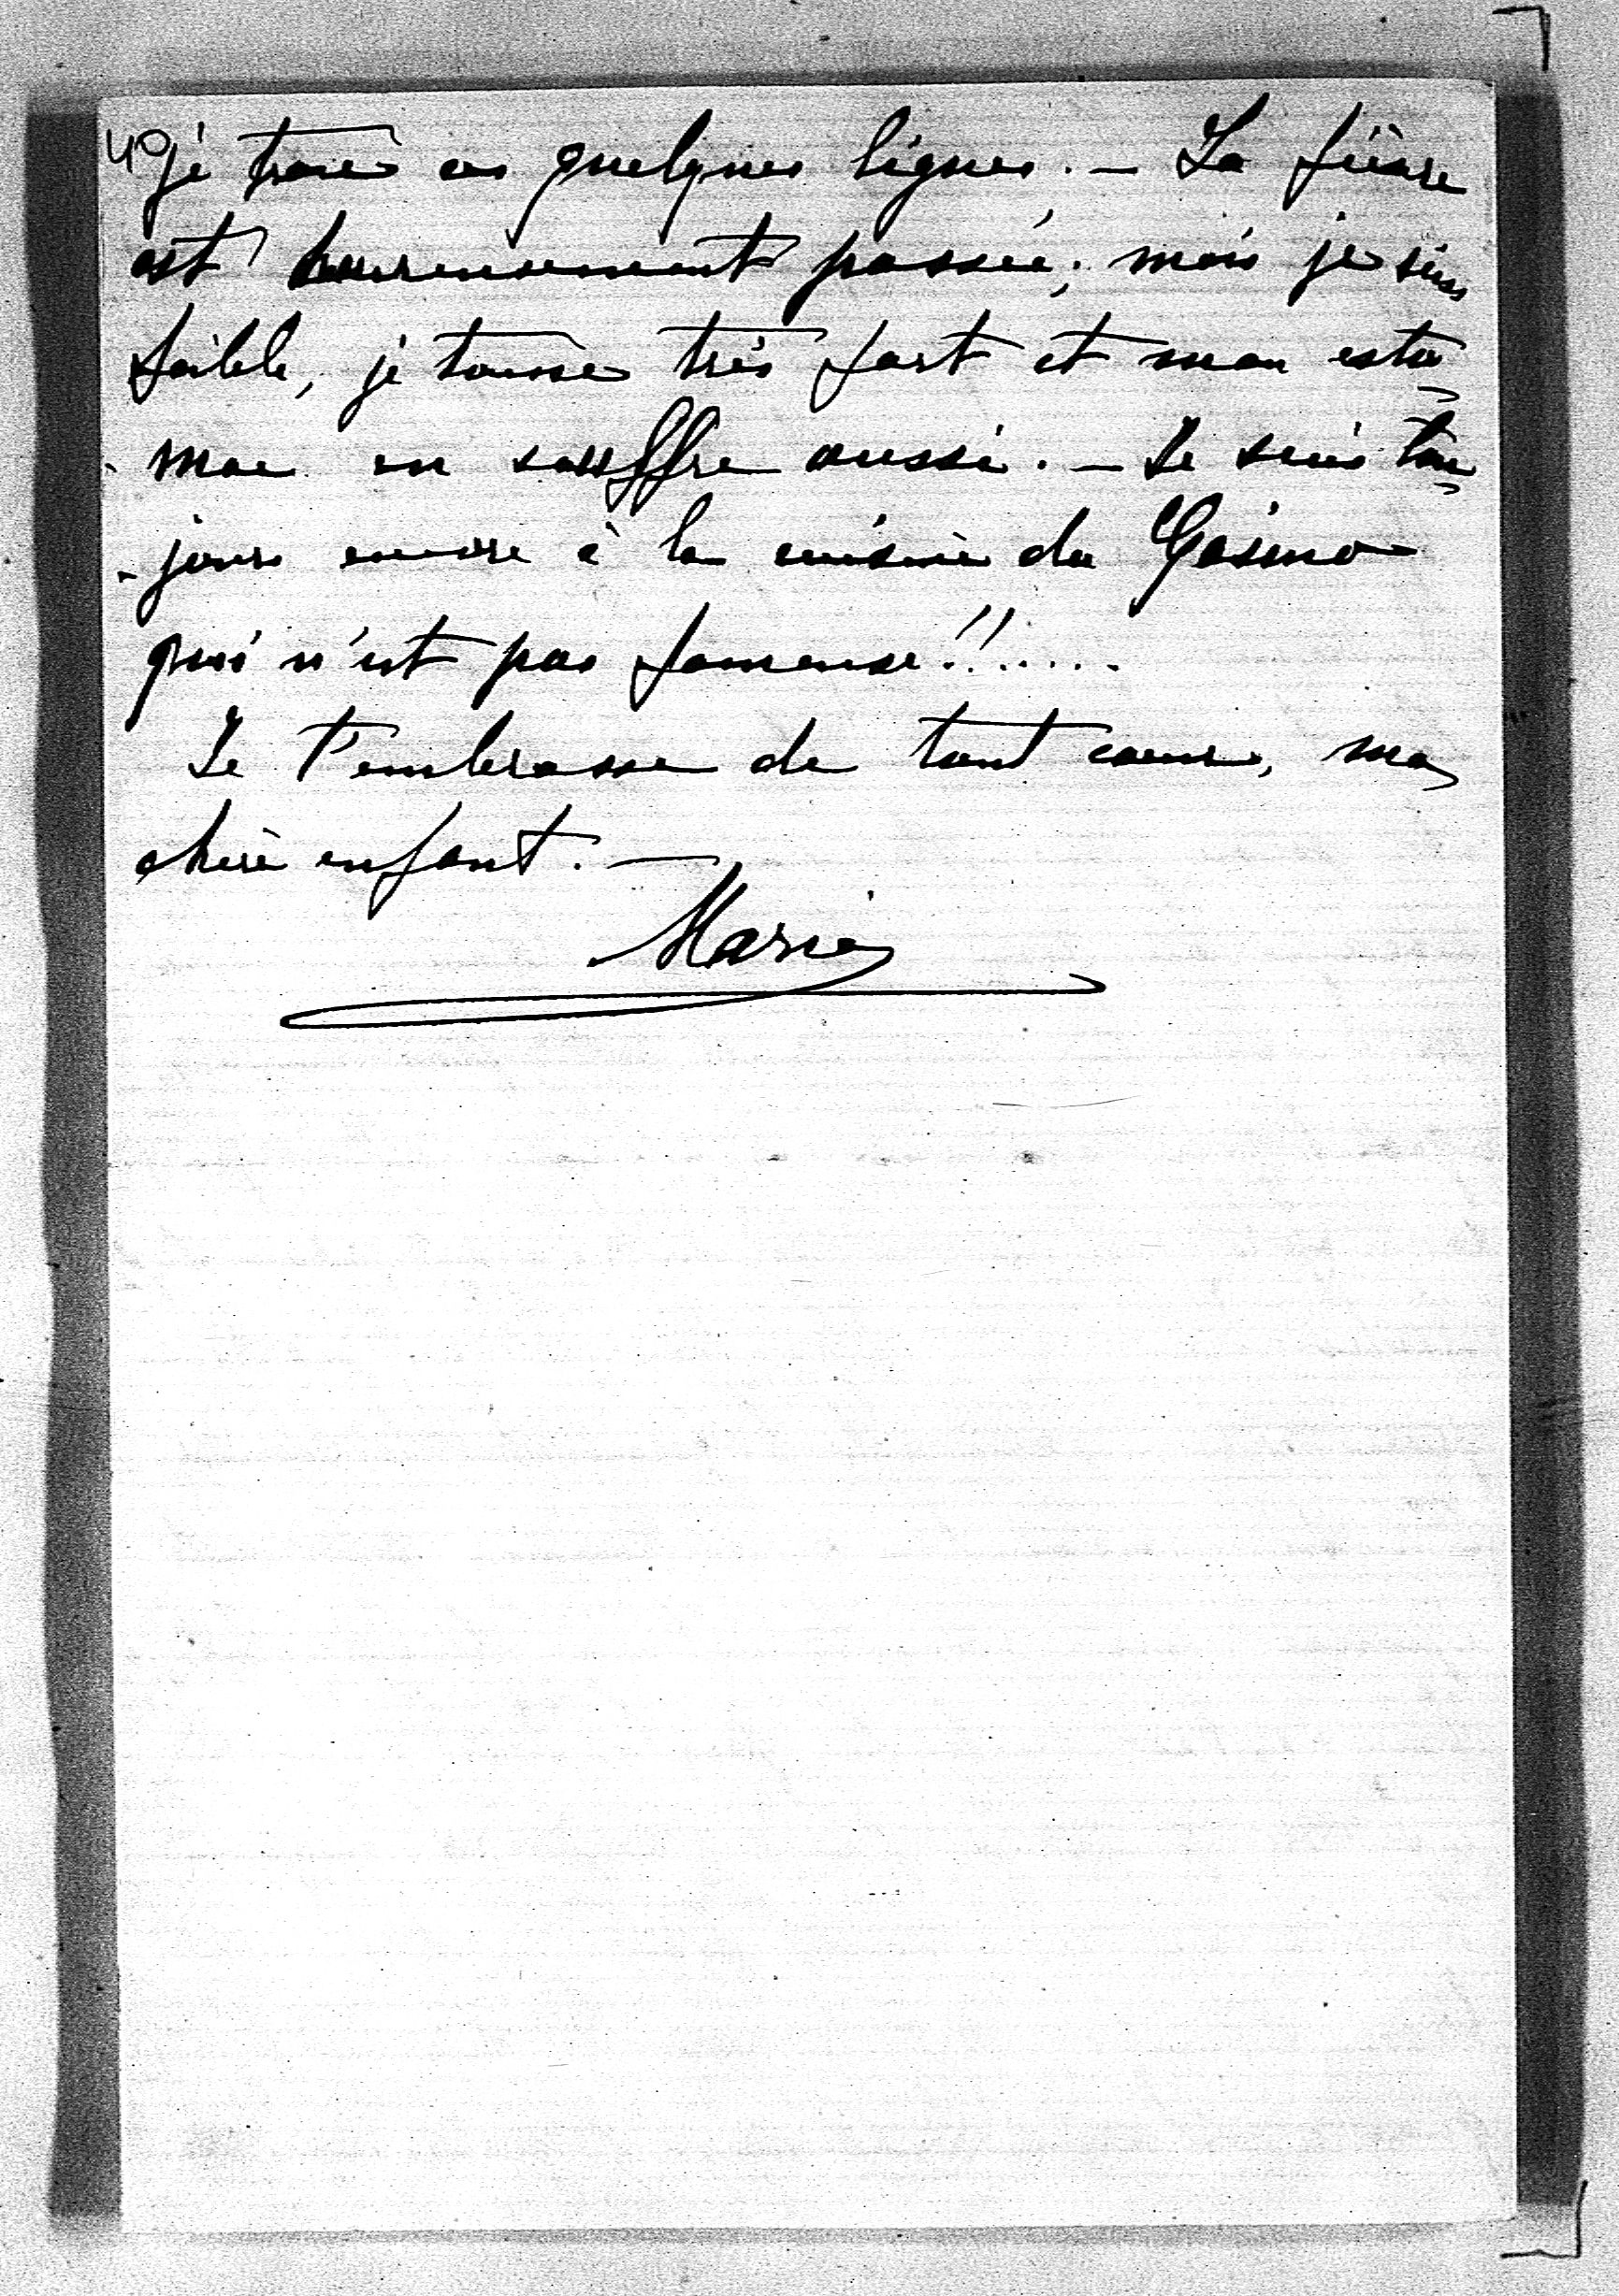 4º je trace ces quelques lignes. — La fièvre
est heureusement passée; mais je suis
faible, je tousse très fort et mon esto
- mac en souffre aussi. — Je suis tou
- jours encore à la cuisine du Casino
qui n'est pas fameuse!!......
Je t'embrasse de tout coeur, ma
chère enfant. —
Marie